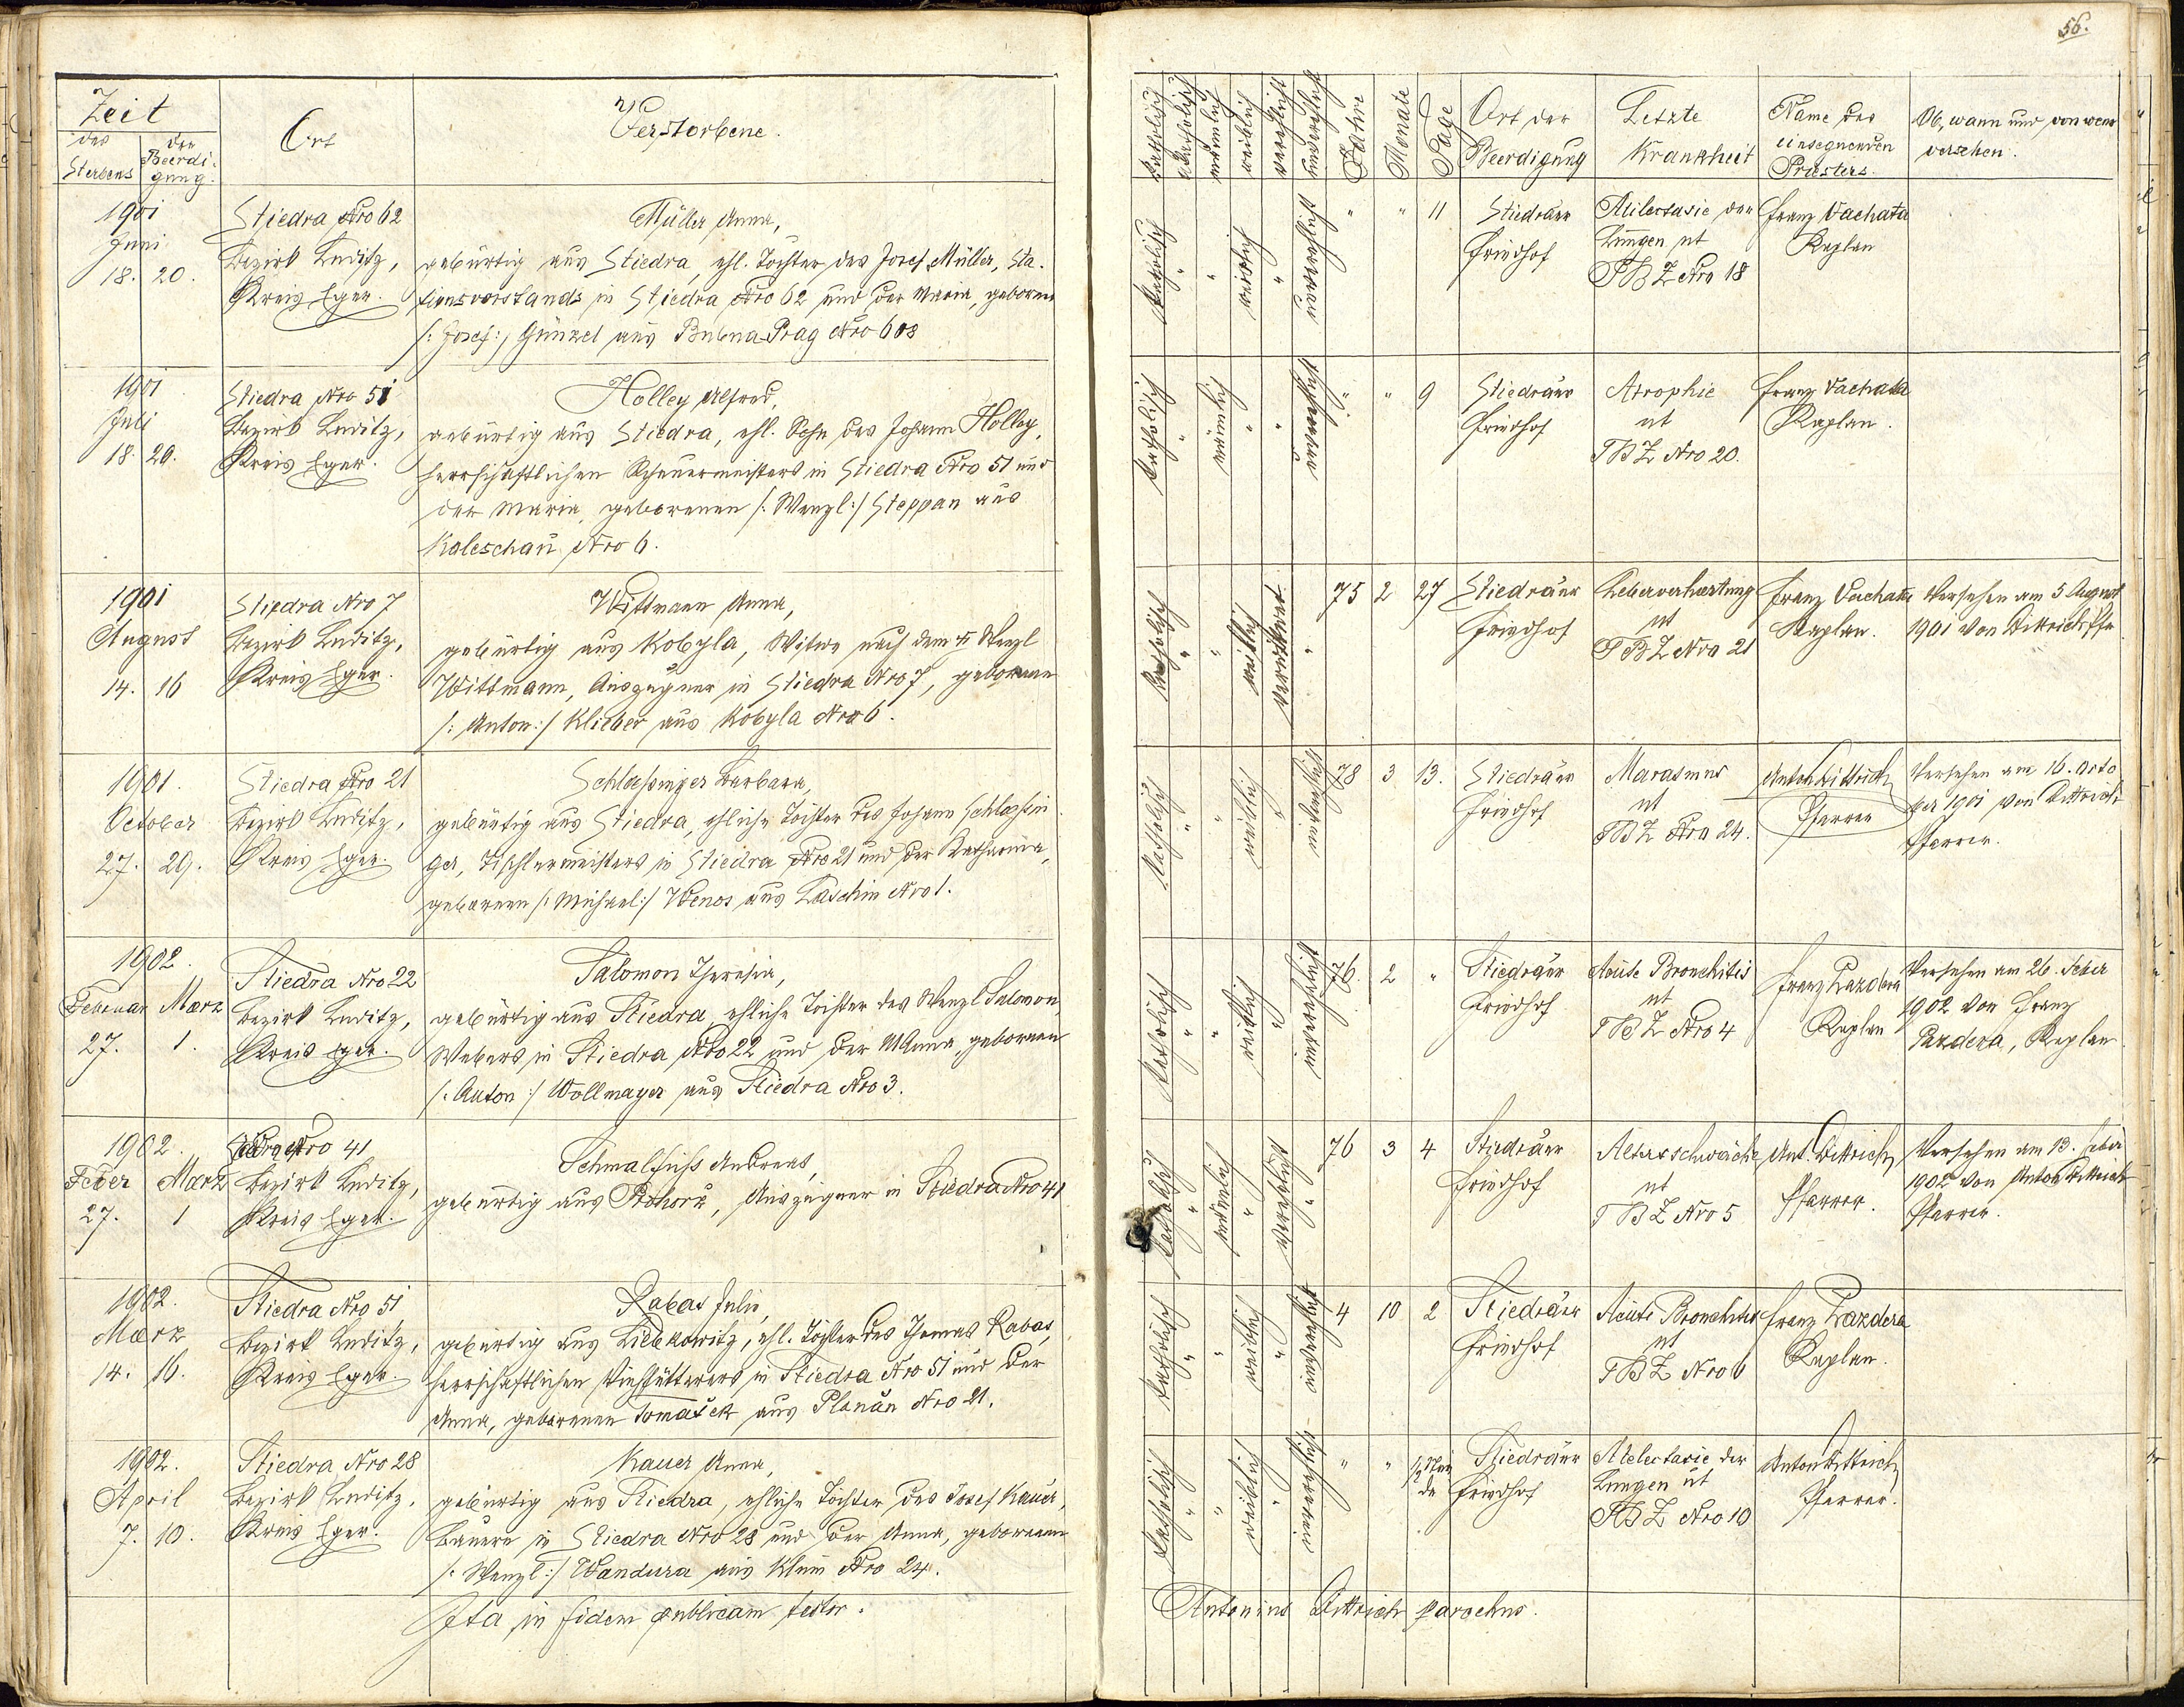 56.
Zeit
des Sterbens
der Beerdigung.
Ort
Verstorbene.
katholisch
akatholisch
männlich
weiblich
verehlicht
unverehlicht
Jahre
Monate
Tage
Ort der Beerdigung
Letzte Krankheit
Name des einsegnenden Priesters.
Ob, wann und von wem versehen.
1901
Juni
18. 20.
Stiedra Nro 62
Bezirk Luditz,
Kreis Eger.
Müller Anna,
gebürtig aus Stiedra, ehl. Tochter des Josef Müller, Sta-
tionsvorstands in Stiedra Nro 62 und der Maria, geborene
/: Josef :/ Günzel aus Bubena-Prag Nro 603
katholisch " " weiblich " unverehlicht " " 11
Stiedraer
Friedhof
Atilectasie der
Lungen ut
TBZ Nro 18
Franz Vachata
Kaplan
1901
Juli
18. 20.
Stiedra Nro 51
Bezirk Luditz,
Kreis Eger.
Holley Alfred,
gebürtig aus Stiedra, ehl. Sohn des Johann Holley,
herrschaftlichen Scheuermeisters in Stiedra Nro 51 und
der Maria, geborenen /: Wenzl :/ Steppan aus
Kaleschau Nro 6.
katholisch " männlich " " unverehlicht " " 9
Stiedraer
Friedhof
Atrophie
ut
TBZ Nro 20.
Franz Vachata
Kaplan.
1901
August
14. 16
Stiedra Nro 7
Bezirk Luditz,
Kreis Eger.
Wittmann Anna,
gebürtig aus Kobyla, Witwe nach dem † Wenzl
Wittmann, Auszügner in Stiedra Nro 7, geborene
/: Anton :/ Klieber aus Kobyla Nro 6.
katholisch " " weiblich verwitwet " 75 2 27
Stiedraer
Friedhof
Leberverhärtung
ut
TBZ Nro 21
Franz Vachata
Kaplan.
Versehen am 5 August
1901 von Dittrich Pfr
1901.
October
27. 29.
Stiedra Nro 21
Bezirk Luditz,
Kreis Eger.
Schlossinger Barbara,
gebürtig aus Stiedra, ehliche Tochter des Johann Schlossin
ger, Tischlermeisters in Stiedra Nro 21 und der Katharina,
geborenen /: Michael :/ Wenos aus Laschin Nro 1.
katholisch " " weiblich " unverehlicht 78 3 13.
Stiedraer
Friedhof
Marasmus
ut
TBZ Nro 24.
Anton Dittrich
Pfarrer
Versehen am 16. Octo
ber 1901 von Dittrich
Pfarrer.
1902.
Februar März
27. 1.
Stiedra Nro 22
Bezirk Luditz,
Kreis Eger.
Salomon Theresia,
gebürtig aus Stiedra, ehliche Tochter des Wenzl Salomon,
Webers in Stiedra Nro 22 und der M Anna, geborenen
/: Anton :/ Wollmayer aus Stiedra Nro 3.
katholisch " " weiblich " unverehlicht 76. 2 "
Stiedraer
Friedhof
Acute Bronchitis
ut
TBZ Nro 4
Franz Pazdera
Kaplan
Versehen am 26. Feber
1902 von Franz
Pazdera, Kaplan
1902.
Feber März
27. 1
Stiedra Nro 41
Bezirk Luditz,
Kreis Eger.
Schmalfuß Andreas,
gebürtig aus Prohorz, Auszügner in Stiedra Nro 41
katholisch " männlich " verehlicht " 76 3 4
Stiedraer
Friedhof
Altersschwäche
ut
TBZ Nro 5
Ant. Dittrich
Pfarrer.
Versehen am 13. Feber
1902 von Anton Dittrich
Pfarrer.
1902.
März
14. 16.
Stiedra Nro 51
Bezirk Luditz,
Kreis Eger.
Rabas Julie,
gebürtig aus Liebkowitz, ehl. Tochter des Thomas Rabas,
herrschaftlichen Viehfütterers in Stiedra Nro 51 und der
Anna, geborenen Tomášek aus Planán Nro 21.
katholisch " " weiblich " unverehlicht 4 10 2
Stiedraer
Friedhof
Acute Bronchitis
ut
TBZ Nro 6
Franz Pazdera
Kaplan.
1902.
April
7. 10.
Stiedra Nro 28
Bezirk Luditz,
Kreis Eger.
Kauer Anna,
gebürtig aus Stiedra, ehliche Tochter des Josef Kauer,
Bauers in Stiedra Nro 28 und der Anna, geborenen
/: Wenzl :/ Wandura aus Klum Nro 24.
katholisch " " weiblich " unverehlicht " " 1/2 Stunde
Stiedraer
Friedhof
Atelectasie der
Lungen ut
TBZ Nro 10
Anton Dittrich
Pfarrer.
Ita in fidem publicam testor.
Antonius Dittrich parochus.